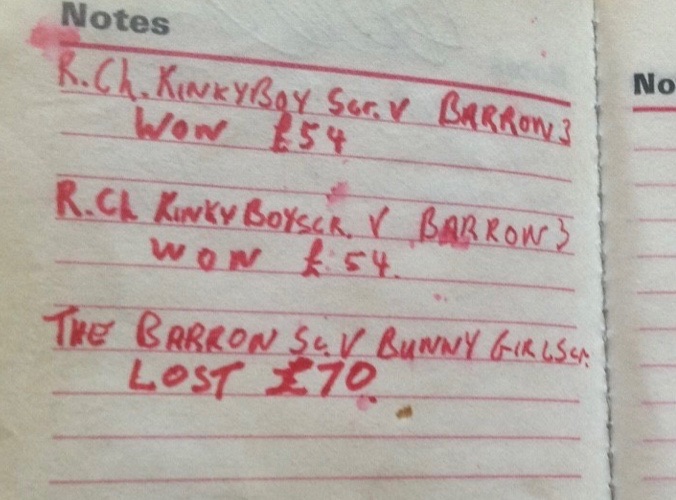 Notes
No
R.Ch. KINKYBOY Scr. V BARRON 3
WON £54
R.Ch KINKY BOYSCR. V BARRON 3
WON £54.
THE BARRON Sc. V BUNNY GIRLScr.
LOST £70.